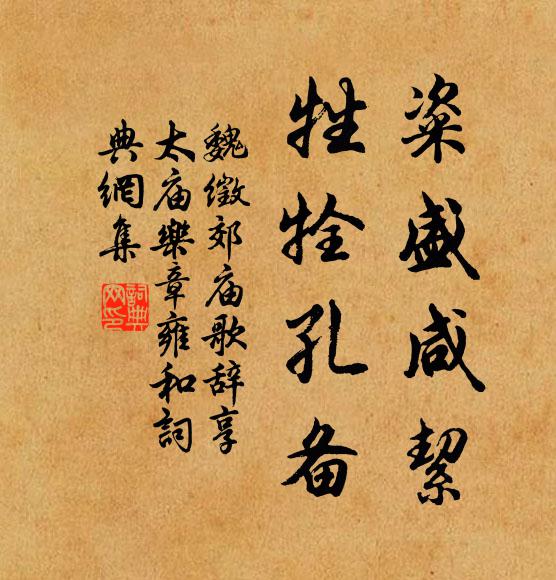 粢盛咸絜
牲牷孔备
魏徵郊庙歌辞享
太庙樂章雍和詞
典網集
詞典网印